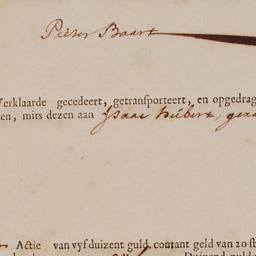 Pieter Baart
Verklaarde gecedeert, getransporteert, en opgedrag
en, mits dezen aan Isaac Hübert,
Actie van vyf duizent guld. contant geld van 20 st
Duizend